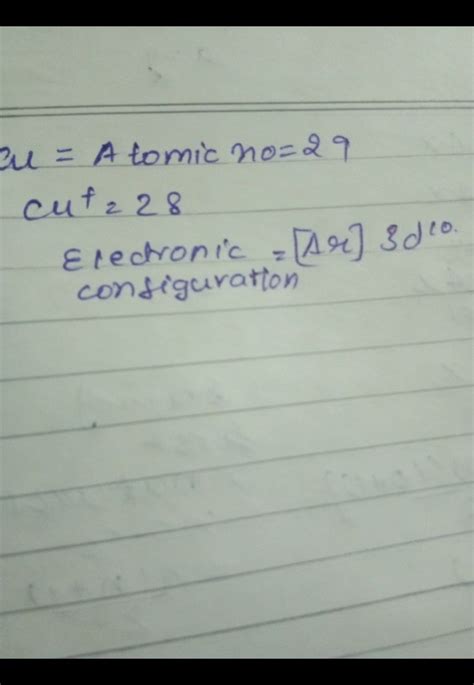 Cu = Atomic no=29
Cu⁺ = 28
Electronic = [Ar] 3d¹⁰.
configuration